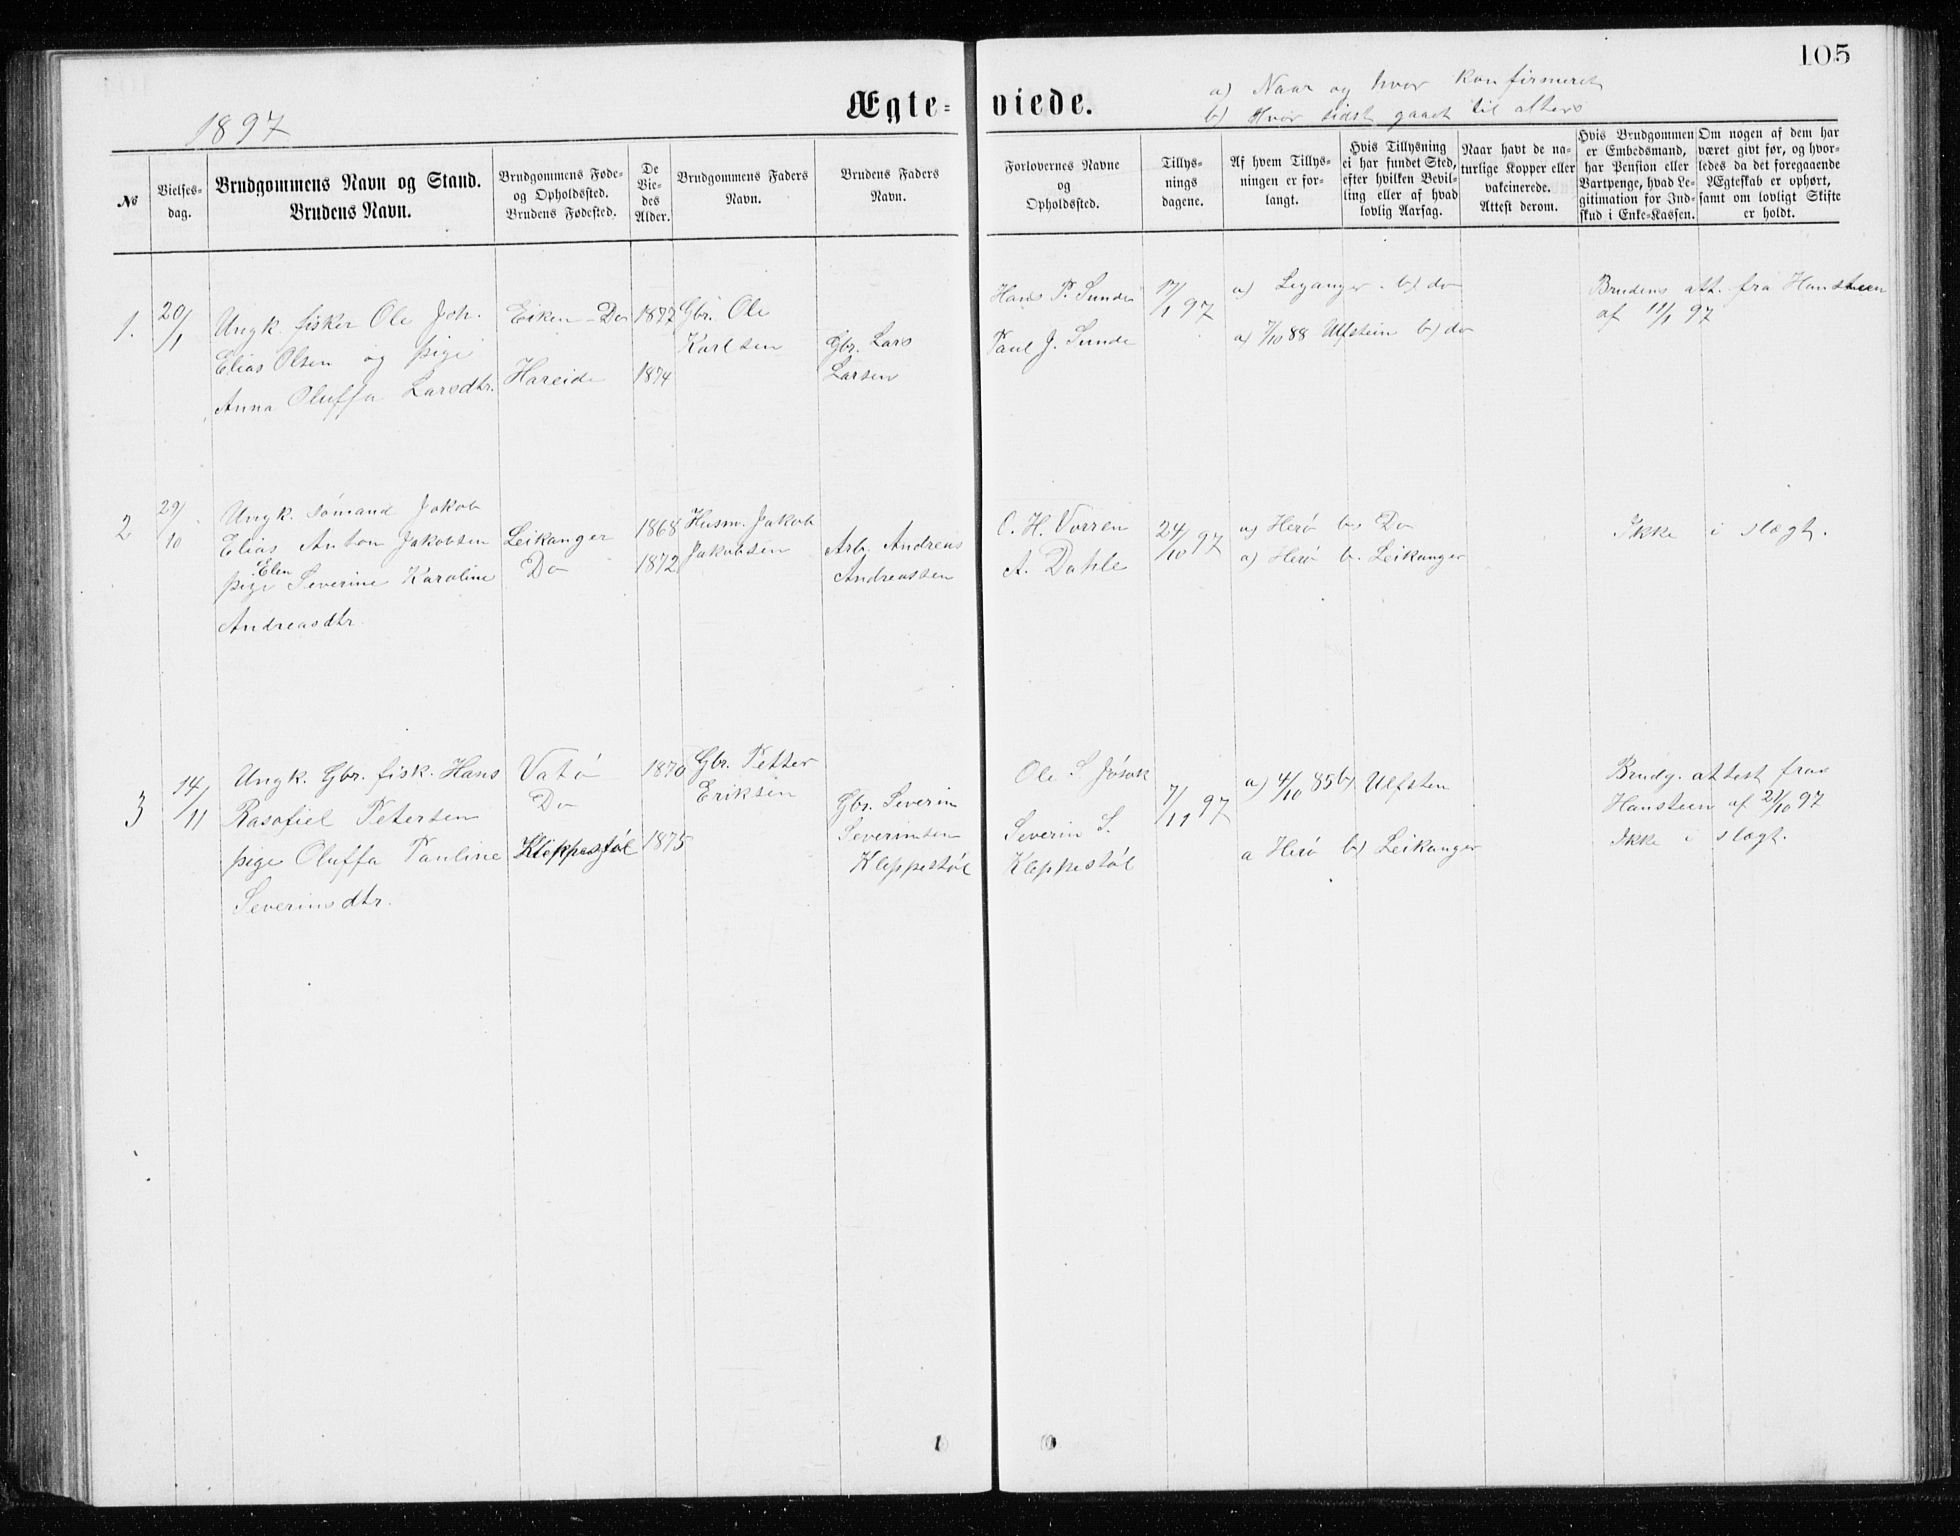 105
1897
Ægte-viede.
a) Naar og hvor konfirmeret
b) Hvor sidst gaaet til alters
No
Vielses-
dag.
Brudgommens Navn og Stand.
Brudens Navn.
Brudgommens Føde-
og Opholdssted.
Brudens Fødested.
De
Vie-
des
Alder.
Brudgommens Faders
Navn.
Brudens Faders
Navn.
Forlovernes Navne
og
Opholdssted.
Tillys-
nings
dagene.
Af hvem Tillys-
ningen er for-
langt.
Hvis Tillysning
ei har fundet Sted,
efter hvilken Bevil-
ling eller af hvad
lovlig Aarsag.
Naar havt de na-
turlige Kopper eller
vakcinerede.
Attest derom.
Hvis Brudgommen
er Embedsmand,
har Pension eller
Vartpenge, hvad Le-
gitimation for Ind-
skud i Enke-Kassen.
Om nogen af dem har
været givt før, og hvor-
ledes da det foregaaende
Ægteskab er ophørt,
samt om lovligt Skifte
er holdt.
1.
20/1
Ungk. fisker Ole Joh.
Elias Olsen og pige
Anna Oluffa Larsdtr.
Eiken - Do
Hareide
1877
1874
Gbr. Ole
Karlsen
Gbr. Lars
Larsen
Hans P. Sunde
Paul J. Sunde
17/1 97
a) Leganger. b) do
a) 7/10 88 Ulfstein b) do
Brudens att. fra Hansteen
af 11/1 97
2
29/10
Ungk. sømand Jakob
Elias Anton Jakobsen
Elen
pige Severine Karoline
Andreasdtr.
Leikanger
Do
1868
1872
Husm. Jakob
Jakobsen
Arb. Andreas
Andreassen
O. H. Vorren
A. Dahle
24/10 97
a) Herø b) Do
a) Herø b. Leikanger
Ikke i slægt.
3
14/11
Ungk. Gbr. fisk. Hans
Rasofiel Petersen
pige Oluffa Pauline
Severinsdtr.
Vatø
Do
Kleppestøl
1870
1875
Gbr. Petter
Eriksen
Gbr. Severin
Severinsen
Kleppestøl
Ole S. Jøsok
Severin S.
Kleppestøl
7/11 97
a) 4/10 85 b) Ulfsten
a Herø b) Leikanger
Brudg. attest fra
Hansteen af 21/10 97
Ikke i slægt.